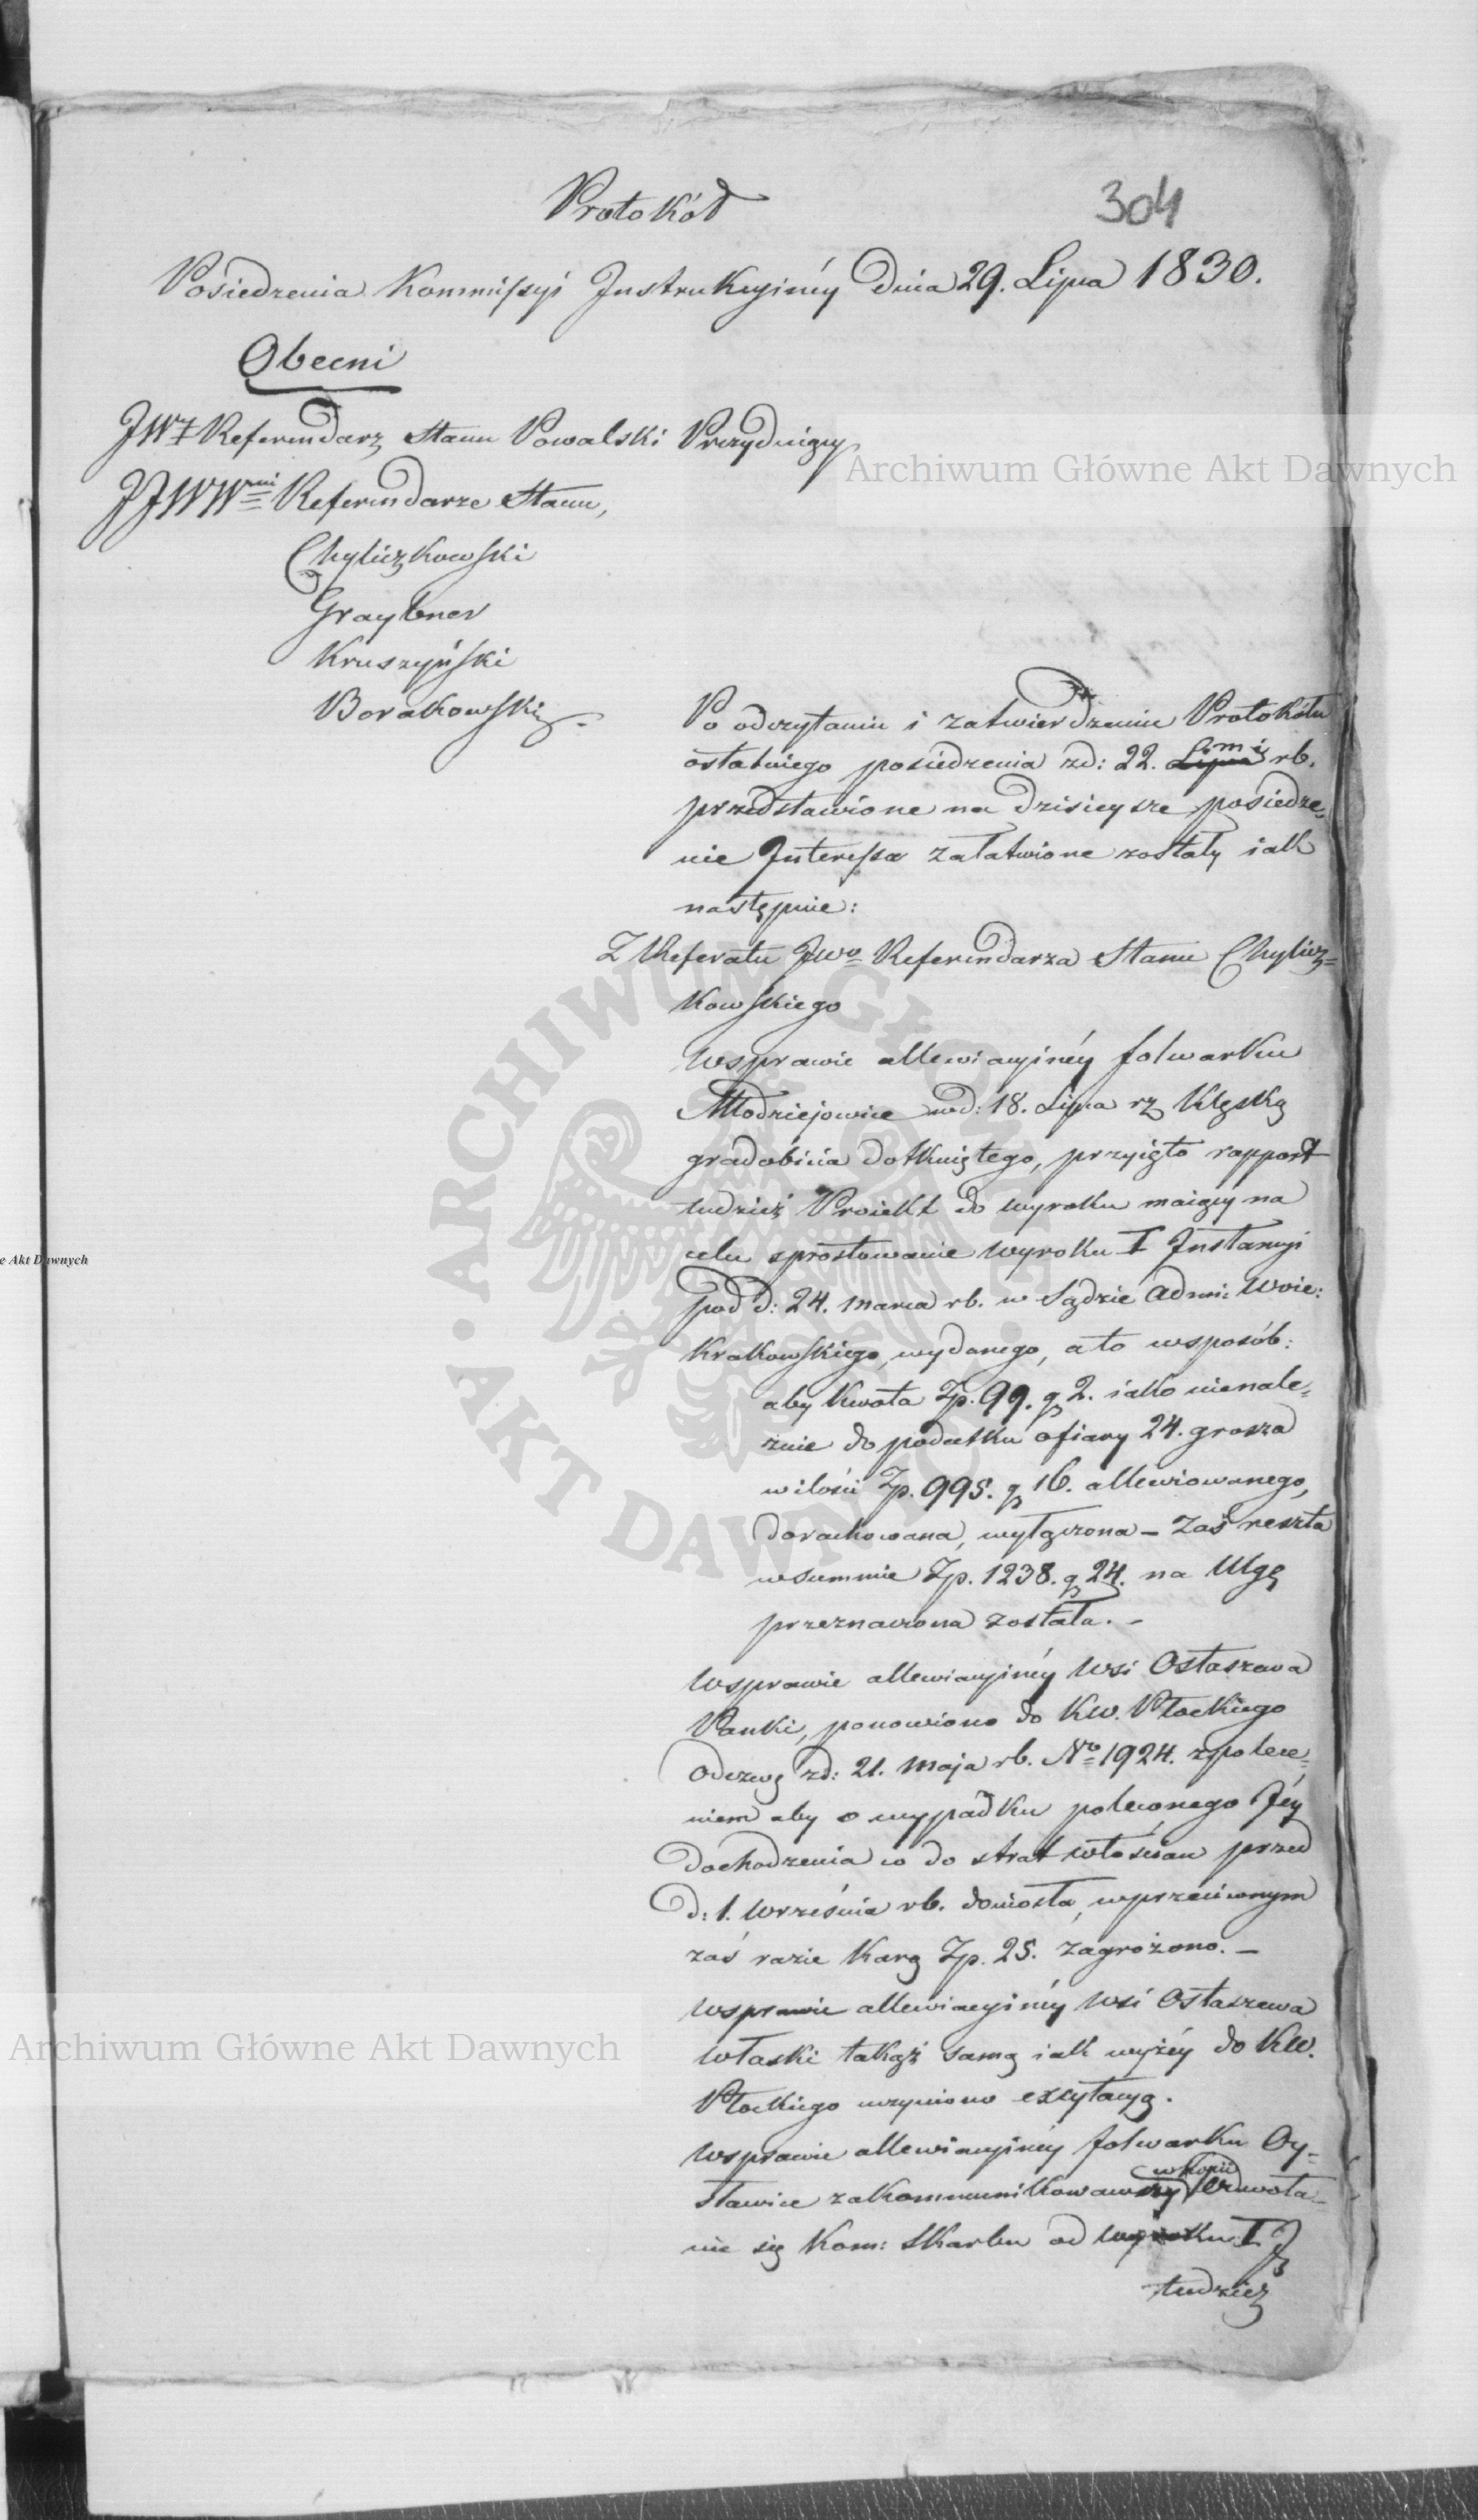 304
Protokół
Posiedzenia Kommissyi Instrukcyinéy Dnia 29. Lipca 1830.
Obecni
JWż Referendarz Stanu Powalski Prezyduiący
JJWWni Referendarze Stanu,
Chyliczkowski
Graybner
Kruszyński
Borakowski.
Po odczytaniu i zatwierdzeniu Protokółu
ostatniego posiedzenia zd: 22. Lipca m. i rb.
przedstawione na dzisieysze posiedze,
nie Interessa załatwione zostały iak
następuie:
Z Referatu JWo Referendarza Stanu Chylicz=
kowskiego
wsprawie allewiacyinéy folwarku
Młodziejowice wd: 18. Lipca rz klęską
gradobicia dotkniętego, przyięto rapport
tudzież Proiekt do wyroku maiący na
celu sprostowanie wyroku I Instancyi
pod d: 24. marca rb. w Sądzie Adm: Woie:
Krakowskiego, wydanego, a to wsposób:
aby kwota Zp. 99. g 2. iako nienale=
żnie do podatku ofiary 24. grosza
wilości Zp. 995. g 16. allewiowanego,
dorachowana, wyłączona – zaś reszta
wsummie Zp. 1238. g 24. na Ulgę
przeznaczona została. –
wsprawie allewiacyinéy wsi Ostaszewa
Panki, ponowiono do KW. Płockiego
Odezwę zd: 21. maja rb. No 1924. zpolece=
niem aby o wypadku poleconego Jéy
dochodzenia co do strat włościan przed
d: 1. września rb. doniosła, wprzeciwnym
zaś razie karą Zp. 25. zagrożono. –
wsprawie allewiacyinéy wsi Ostaszewa
Właski takąż samą iak wyżéy do KW.
Płockiego uczyniono excytacyą.
wsprawie allewiacyinéy folwarku Oy=
sławice zakommunikowawszy w kopii odwoła=
nie się Kom: Skarbu od wyroku I J
tudzież
Archiwum Główne Akt Dawnych
e Akt Dawnych
ARCHIWUM GŁÓWNE AKT DAWNYCH
Archiwum Główne Akt Dawnych